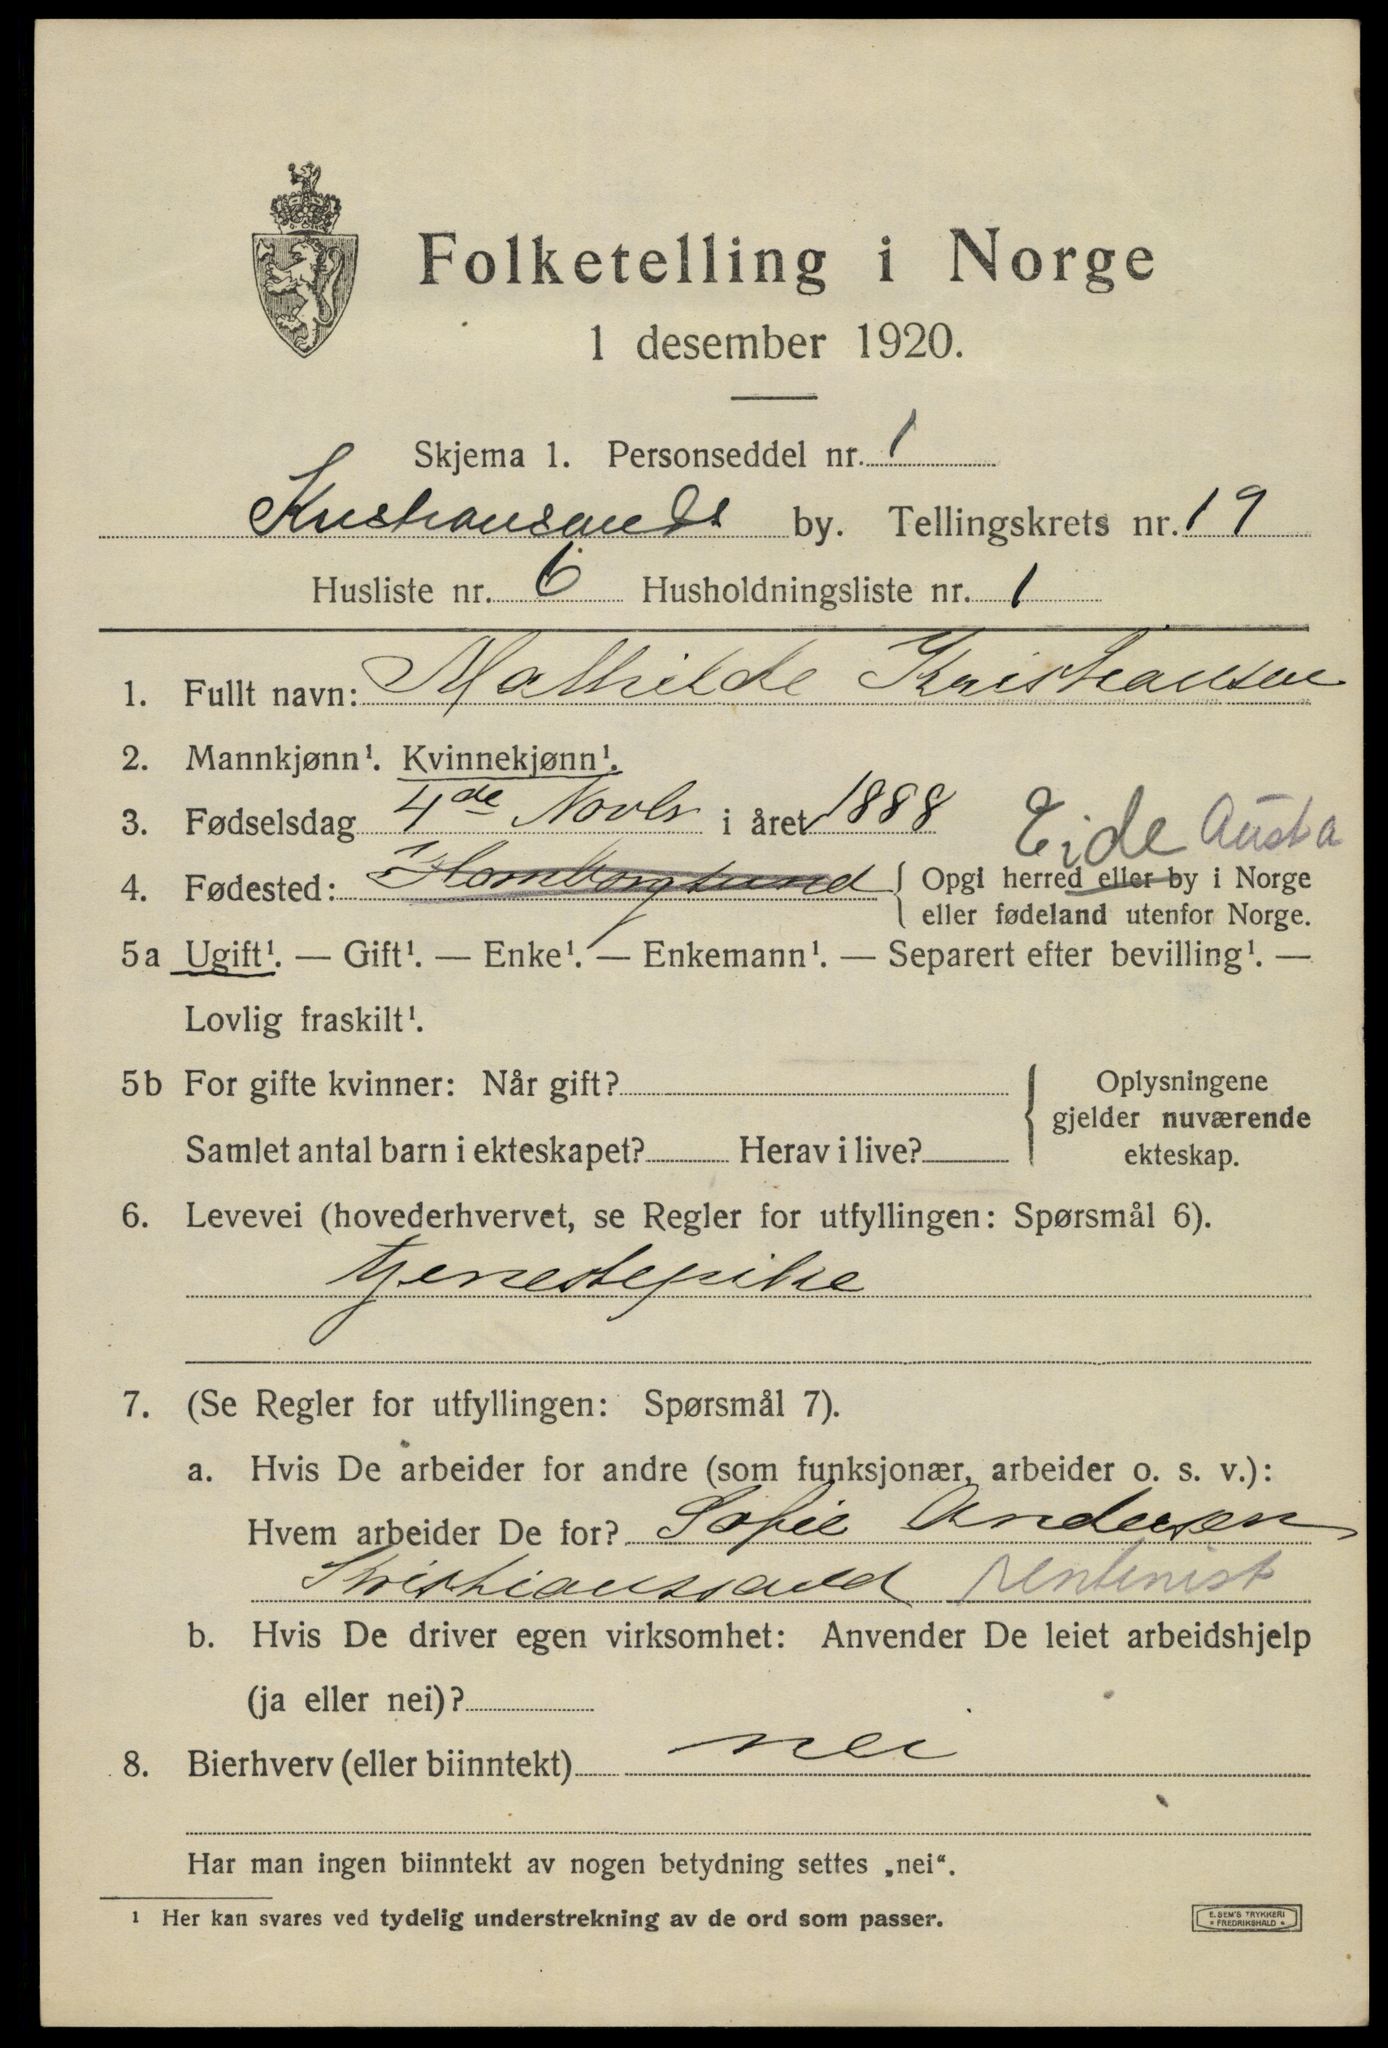 Folketelling i Norge
1 desember 1920.
Skjema 1. Personseddel nr. 1
Kristiansands by. Tellingskrets nr. 19
Husliste nr. 6 Husholdningsliste nr. 1
1. Fullt navn: Mathilde Kristiansen
2. Mannkjønn¹. Kvinnekjønn¹.
3. Fødselsdag 4de Novbr i året 1888 Eide Austa
4. Fødested: Homborgsund { Opgi herred eller by i Norge
eller fødeland utenfor Norge.
5a Ugift¹. — Gift¹. — Enke¹. — Enkemann¹. — Separert efter bevilling¹. —
Lovlig fraskilt¹.
5b For gifte kvinner: Når gift? { Oplysningene
gjelder nuværende
Samlet antal barn i ekteskapet? Herav i live? ekteskap.
6. Levevei (hovederhvervet, se Regler for utfyllingen: Spørsmål 6).
tjenestepike
7. (Se Regler for utfyllingen: Spørsmål 7).
a. Hvis De arbeider for andre (som funksjonær, arbeider o. s. v.):
Hvem arbeider De for? Sofie Andersen
Kristianssand rentenist
b. Hvis De driver egen virksomhet: Anvender De leiet arbeidshjelp
(ja eller nei)?
8. Bierhverv (eller biinntekt) nei
Har man ingen biinntekt av nogen betydning settes „nei“.
¹ Her kan svares ved tydelig understrekning av de ord som passer.
E. SEM'S TRYKKERI
* FREDRIKSHALD *